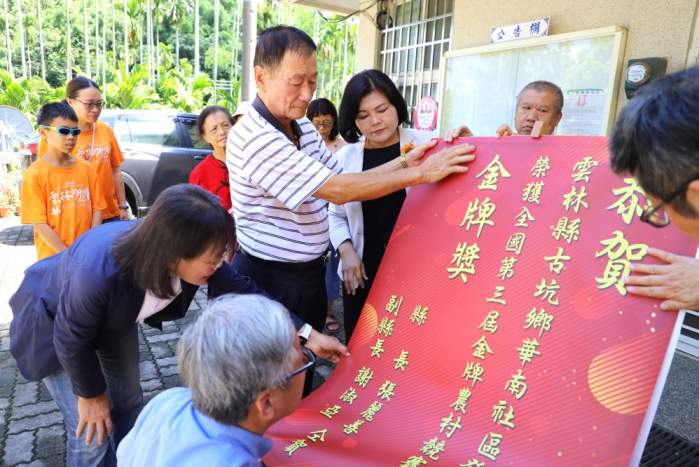 公告欄
恭賀
雲林縣古坑鄉華南社區發
榮獲全國第三屆金牌農村競賽
金牌獎
縣長張麗善
副縣長謝淑亞 仝賀